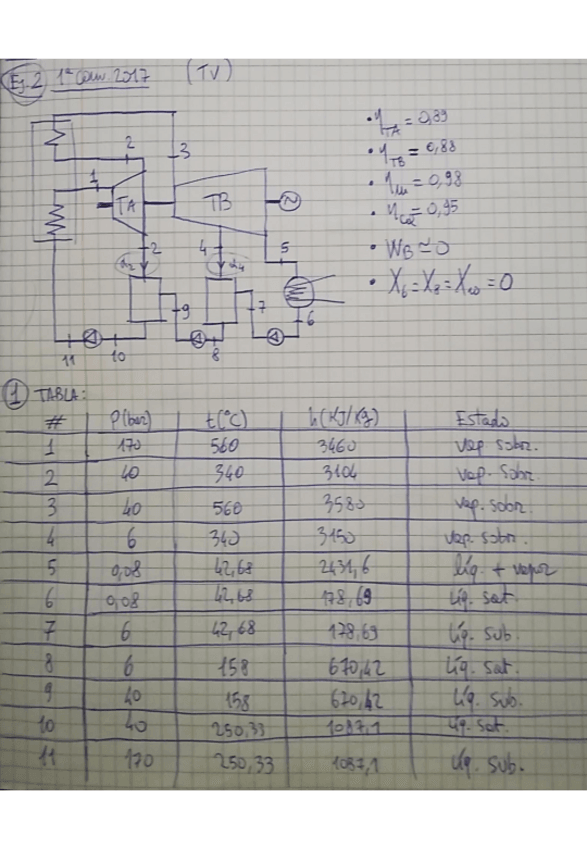 Ej.2 1ª conv. 2017 (TV)
• η_TA = 0,89
• η_TB = 0,88
• η_m = 0,98
• η_cal = 0,95
• W_B ≃ 0
• X₆ = X₈ = X₁₀ = 0
1 2 3 TA TB
2 4 5
α₂ α₄
9 7 6
11 10 8
① TABLA:
# P(bar) t(°C) h(KJ/Kg) Estado
1 170 560 3460 vap. sobr.
2 40 340 3104 vap. sobr.
3 40 560 3580 vap. sobr.
4 6 340 3150 vap. sobr.
5 0,08 42,68 2431,6 líq. + vapor
6 0,08 42,68 178,69 líq. sat.
7 6 42,68 178,69 líq. sub.
8 6 158 670,42 líq. sat.
9 40 158 670,42 líq. sub.
10 40 250,33 1087,1 líq. sat.
11 170 250,33 1087,1 líq. sub.